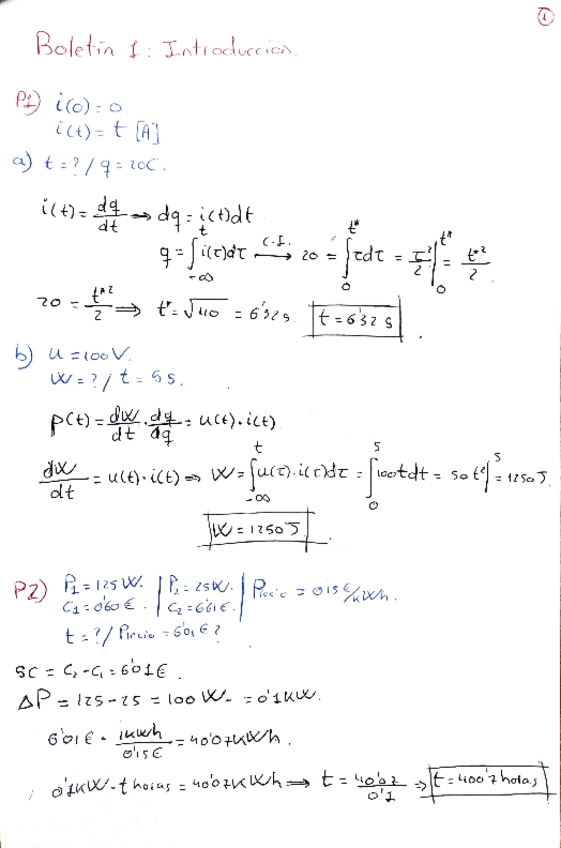 1
Boletín 1: Introducción.
P1) i(0) = 0
i(t) = t [A]
a) t = ? / q = 20C.
i(t) = dq/dt ⟹ dq = i(t)dt
q = ∫_{-∞}^{t} i(τ)dτ —C.I.→ 20 = ∫_0^{t*} τdτ = τ²/2 |_0^{t*} = t*²/2
20 = t*²/2 ⟹ t* = √40 = 6'32 s. t = 6'32 s
b) u = 100V.
W = ? / t = 5 s.
p(t) = dW/dt · dq/dq = u(t) · i(t)
dW/dt = u(t) · i(t) ⟹ W = ∫_{-∞}^{t} u(τ) · i(τ)dτ = ∫_0^5 100tdt = 50t² |^5 = 1250 J.
W = 1250 J.
P2) P₁ = 125 W. | P₂ = 25W. | Precio = 0'15 €/kWh.
C₁ = 0'60 €. | C₂ = 6'61 €. |
t = ? / Precio = 6'01 € ?
SC = C₂ - C₁ = 6'01 €.
ΔP = 125 - 25 = 100 W. = 0'1 KW.
6'01 € · 1KWh/0'15 € = 40'07 KWh.
0'1KW · t horas = 40'07 KWh ⟹ t = 40'07/0'1 ⟹ t = 400'7 horas